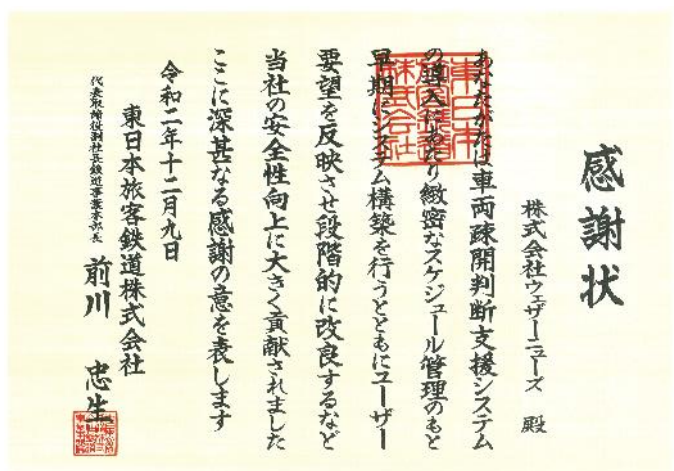 感謝状
株式会社ウェザーニューズ 殿
あなたがたは車両疎開判断支援システム
の導入にあたり緻密なスケジュール管理のもと
早期にシステム構築を行うとともにユーザー
要望を反映させ段階的に改良するなど
当社の安全性向上に大きく貢献されました
ここに深甚なる感謝の意を表します
令和二年十二月九日
東日本旅客鉄道株式会社
代表取締役副社長鉄道事業本部長 前川 忠生
東日本
旅客鉄道
株式会社